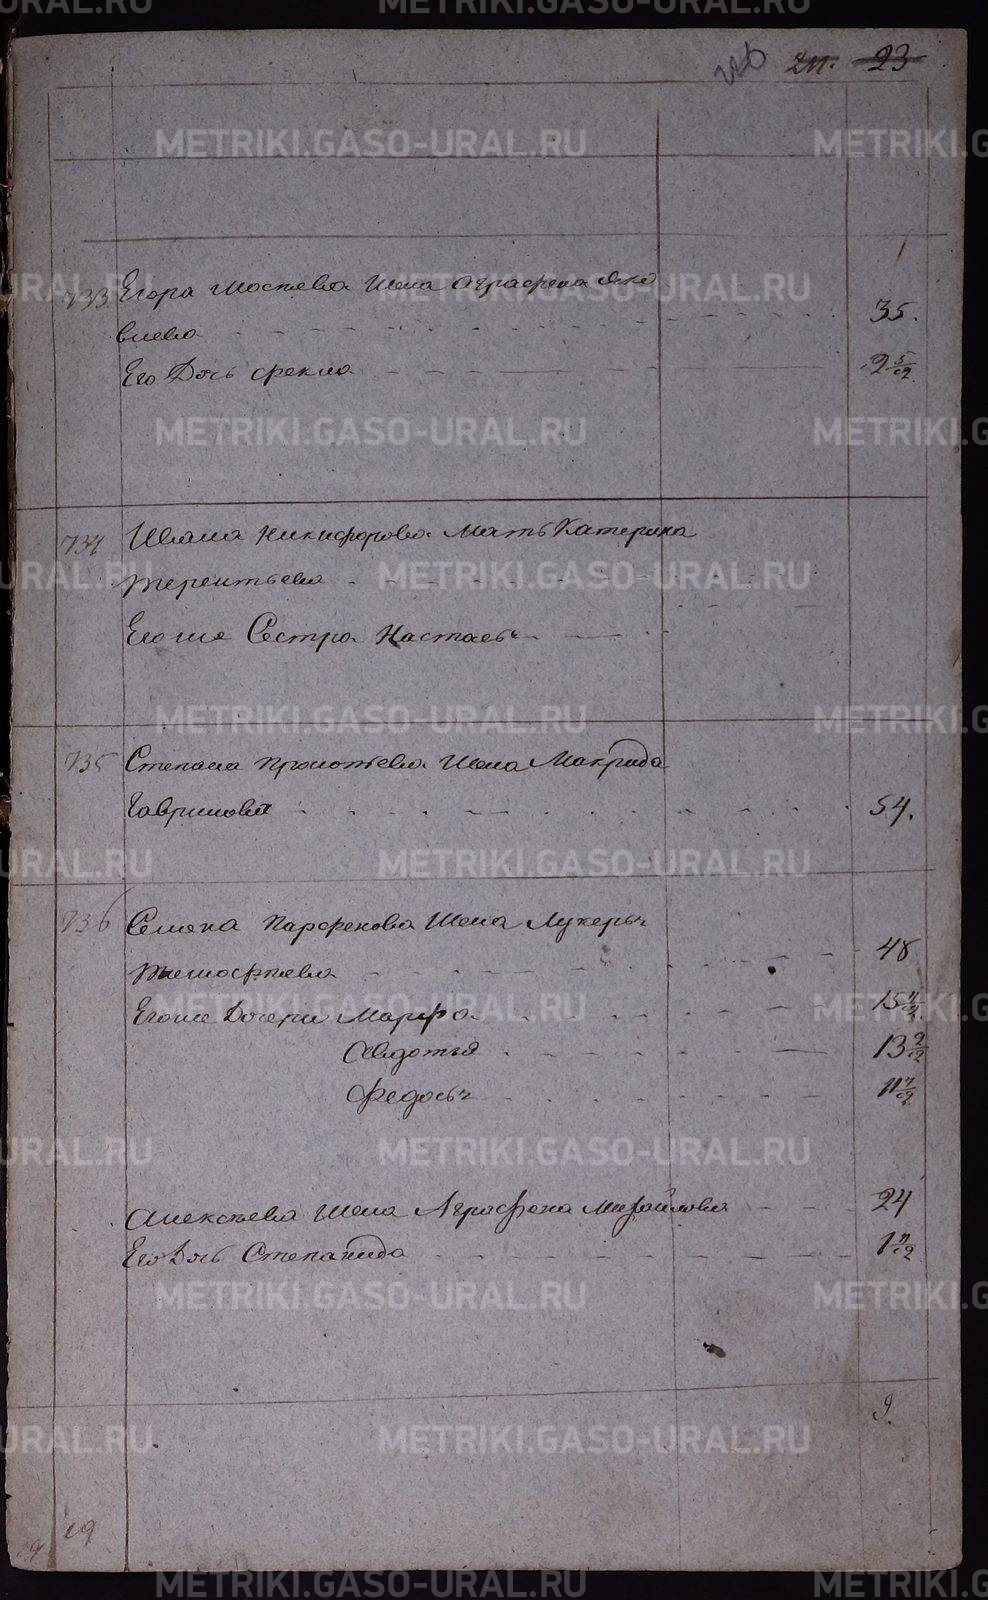 211. 23
733 Егора Мосеева Жена Аграфена Яко
влева 35.
Его Дочь Фекла 2 5/12
734 Ивана Никифорова Мать Катерина
Терентьева
Его же Сестра Настасья
735 Степана Прокопьева Жена Макрида
Гаврилова 54.
736 Семена Парфенова Жена Лукерья
Тимофеева 48
Его же Дочери Марфа 15 11/12
Авдотья 13 2/12
Федосья 11 7/12
Алексеева Жена Аграфена Михайлова 24
Его Дочь Степанида 1 11/12
9.
19
METRIKI.GASO-URAL.RU